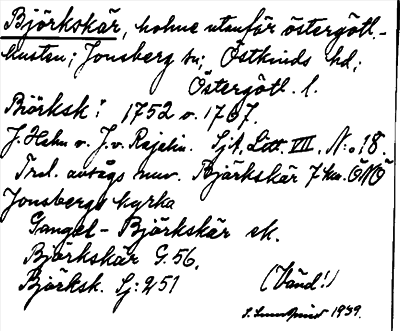 Björkskär, holme utanför östergötl.-
kusten; Jonsberg sn; Östkinds hd;
Östergötl. l.
Biörksk: 1752 o. 1767.
J. Hahn o. J. v. Rajalin. Sjk. Litt. VII. N:o 18.
Trol. avsågs nuv. Bjärkskär 7 km. ÖNÖ
Jonsbergs kyrka
Gangel- Björkskär ek.
Björkskär G. 56.
Björksk. Sj: 251
(Vänd!)
1939.